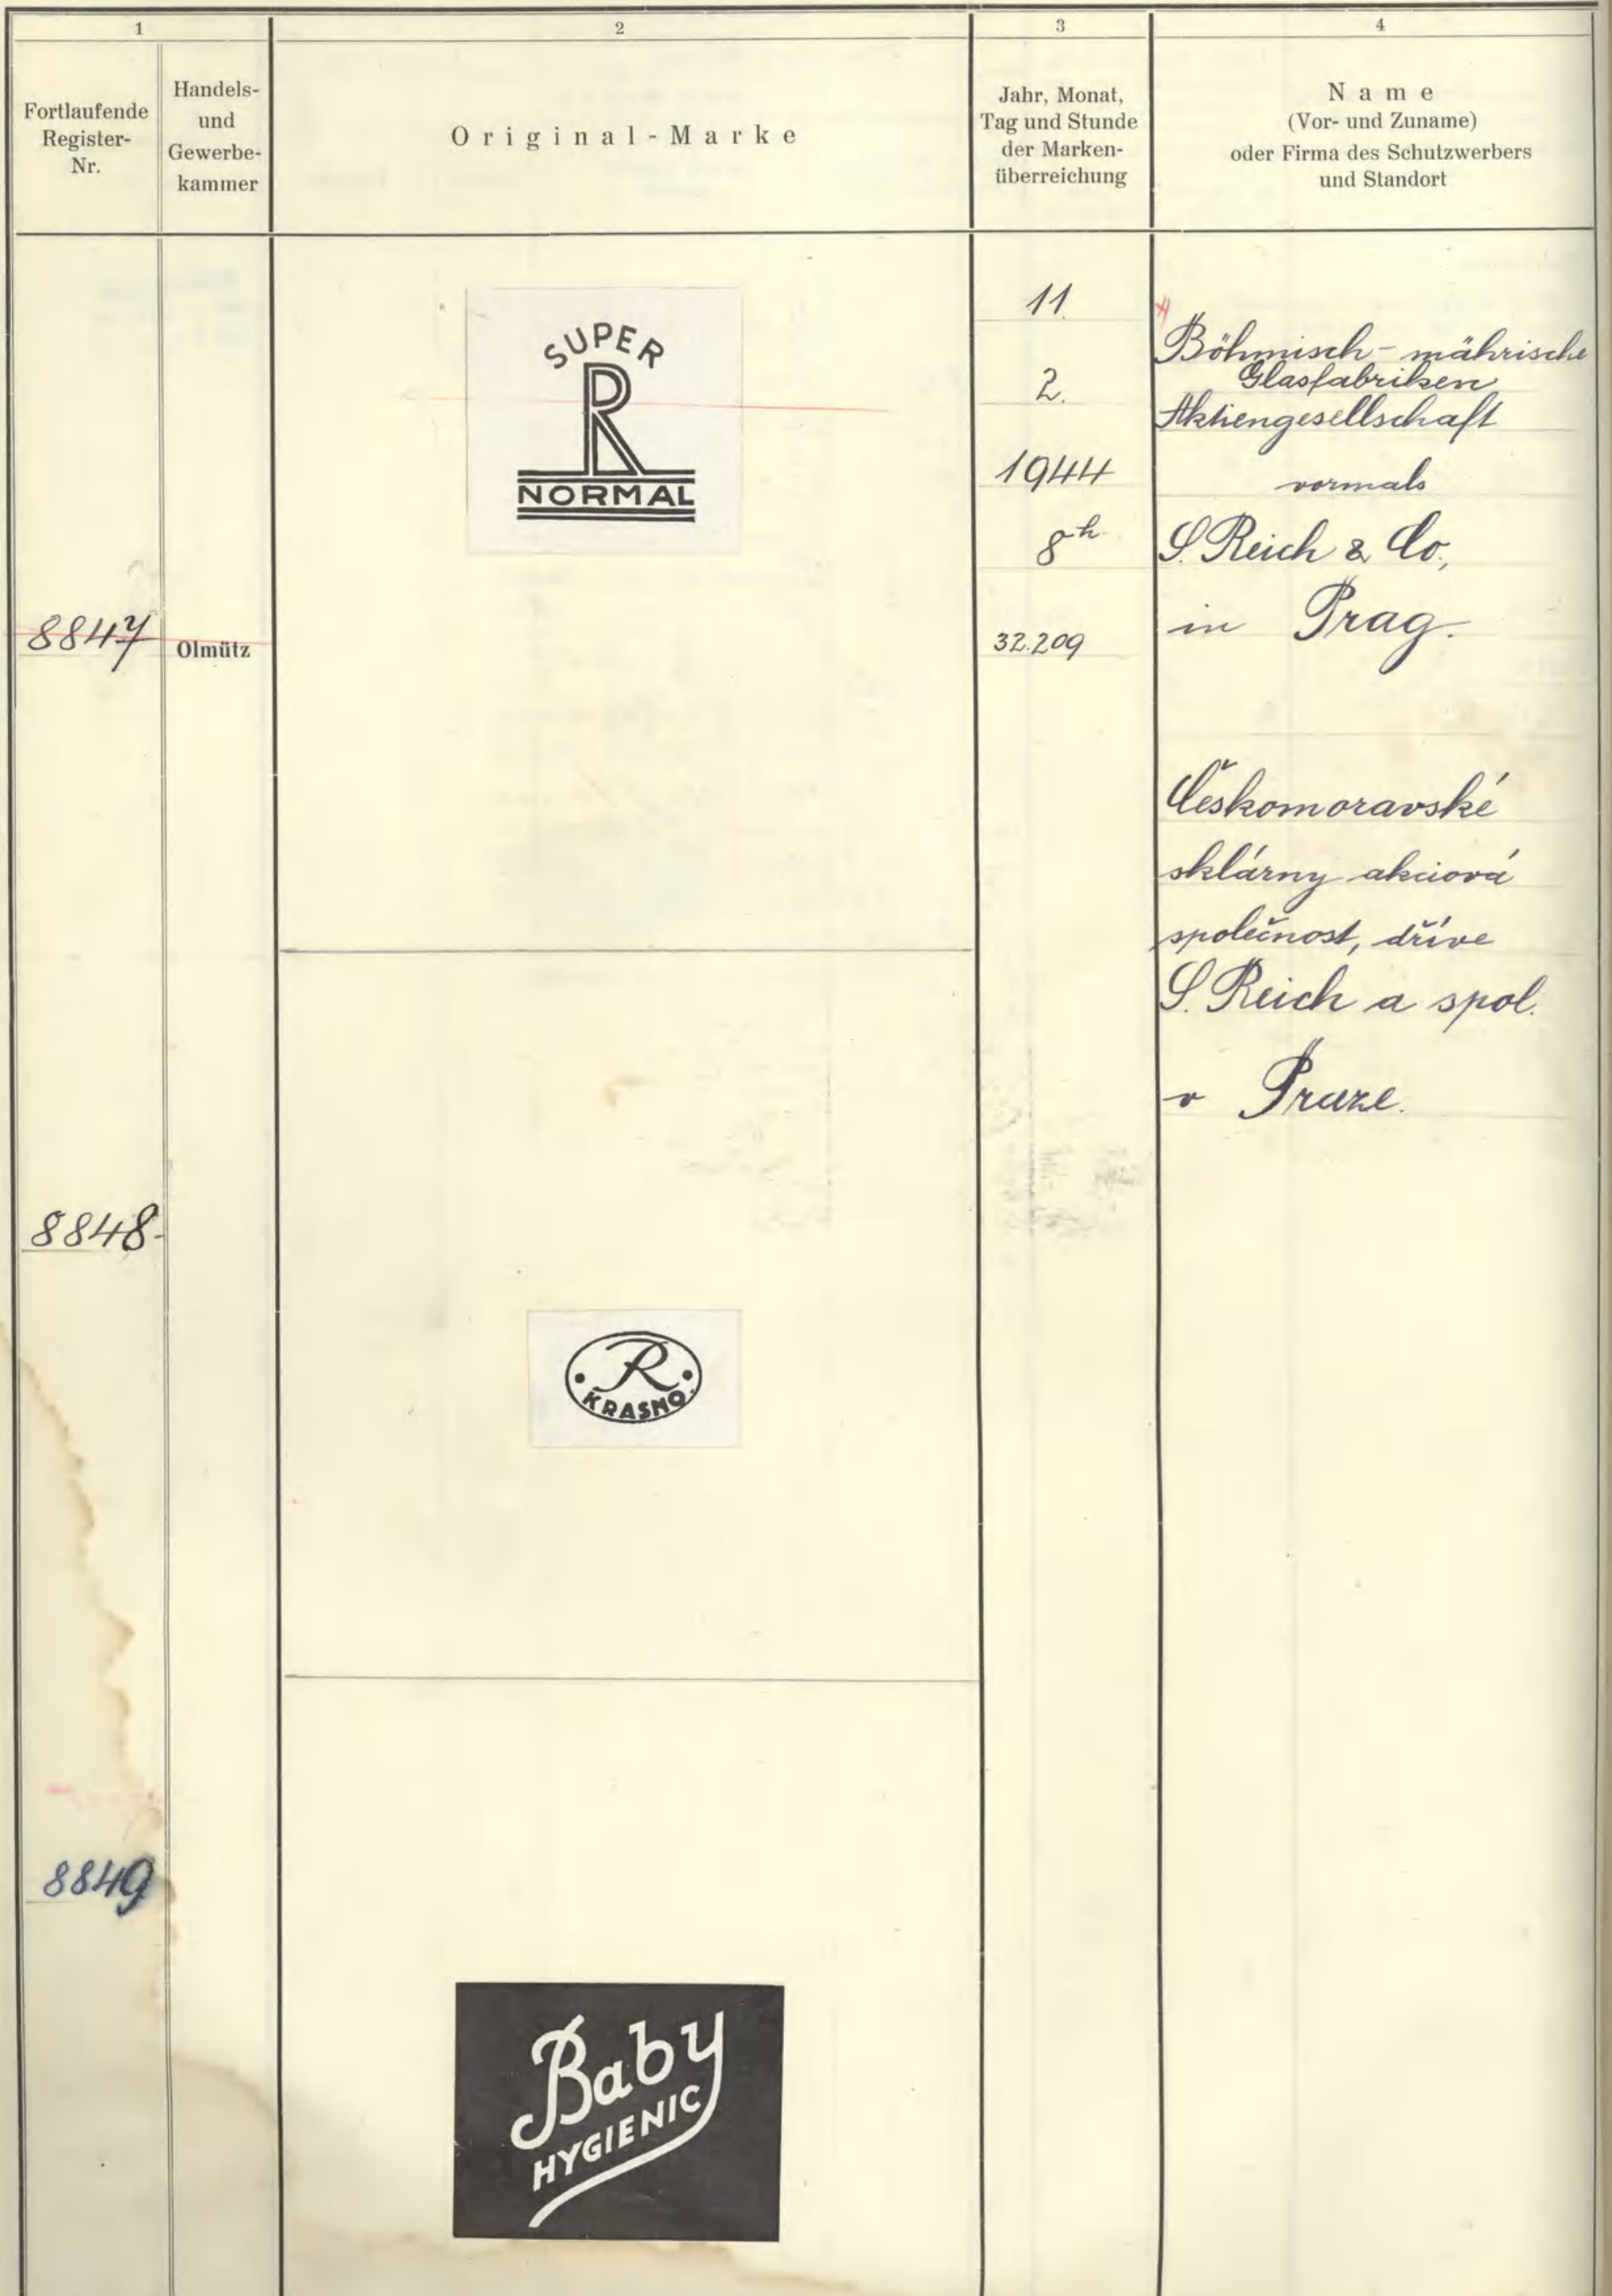 1
2
3
4
Fortlaufende
Register-
Nr.
Handels-
und
Gewerbe-
kammer
Original-Marke
Jahr, Monat,
Tag und Stunde
der Marken-
überreichung
Name
(Vor- und Zuname)
oder Firma des Schutzwerbers
und Standort
8847
Olmütz
SUPER
R
NORMAL
11.
2.
1944
8h
32.209
Böhmisch-mährische
Glasfabriken
Aktiengesellschaft
vormals
S. Reich & Co.,
in Prag.
Českomoravské
sklárny akciová
společnost, dříve
S. Reich a spol.
v Praze.
8848
R
KRASNO.
8849
Baby
HYGIENIC